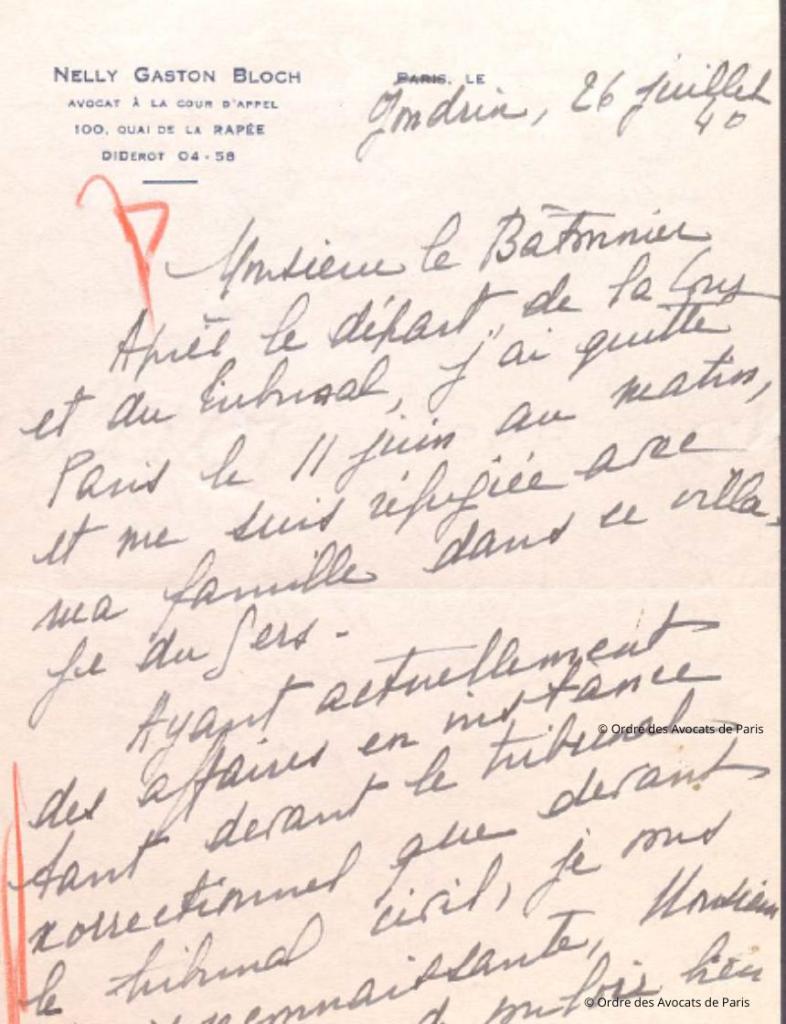 NELLY GASTON BLOCH
AVOCAT À LA COUR D'APPEL
100, QUAI DE LA RAPÉE
DIDEROT 04-58
PARIS, LE
Gondrin, 26 juillet
40
Monsieur le Bâtonnier
Après le départ de la Cour
et du Tribunal, j'ai quitté
Paris le 11 juin au matin,
et me suis réfugiée avec
ma famille dans ce villa-
ge du Gers -
Ayant actuellement
des affaires en instance
tant devant le tribunal
correctionnel que devant
le tribunal civil, je vous
reconnaissante, Monsieur
bien
© Ordre des Avocats de Paris
© Ordre des Avocats de Paris